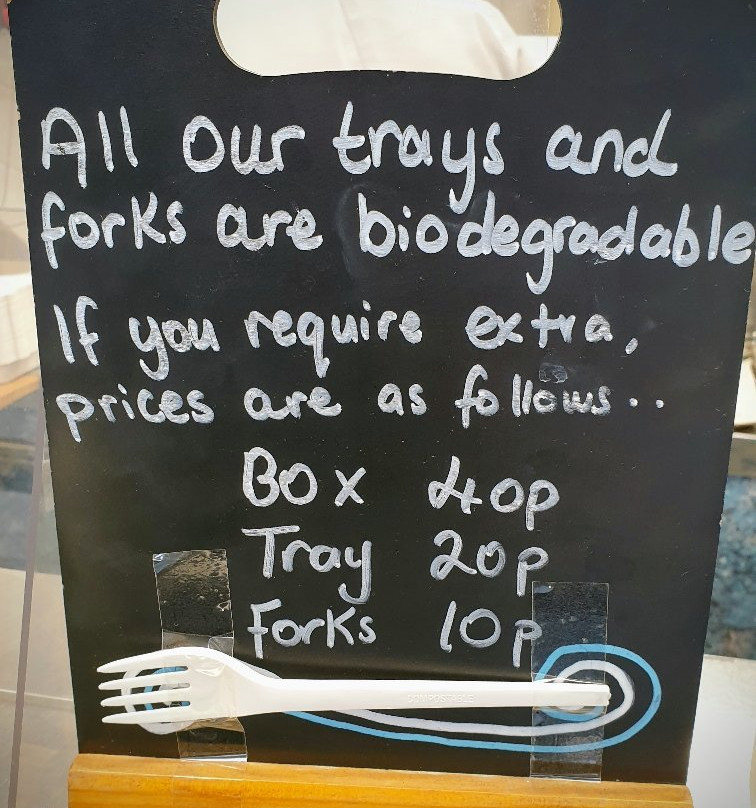 All our trays and
forks are biodegradable
If you require extra,
prices are as follows..
Box 40p
Tray 20p
Forks 10p
COMPOSTABLE